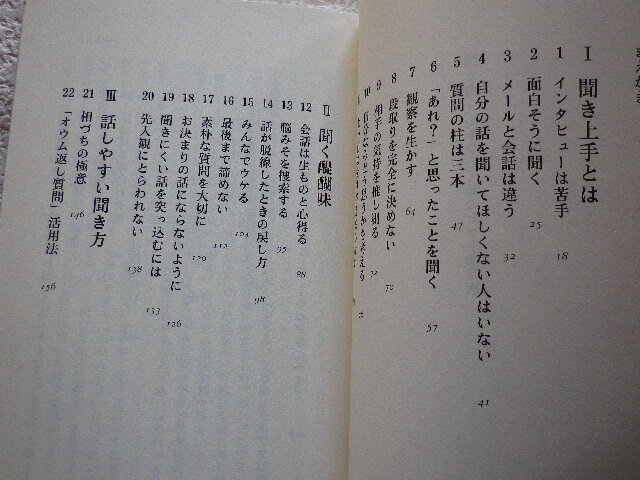 I 聞き上手とは
1 インタビューは苦手 18
2 面白そうに聞く 25
3 メールと会話は違う 32
4 自分の話を聞いてほしくない人はいない 41
5 質問の柱は三本 47
6 「あれ?」と思ったことを聞く 57
7 観察を生かす 64
8 段取りを完全に決めない 72
9 相手の気持を推し測る
10
II 聞く醍醐味
12 会話は生ものと心得る 88
13 脳みそを捜索する 95
14 話が脱線したときの戻し方 98
15 みんなでウケる 104
16 最後まで諦めない 112
17 素朴な質問を大切に 120
18 お決まりの話にならないように 126
19 聞きにくい話を突っ込むには 133
20 先入観にとらわれない 138
III 話しやすい聞き方
21 相づちの極意 146
22 「オウム返し質問」活用法 156